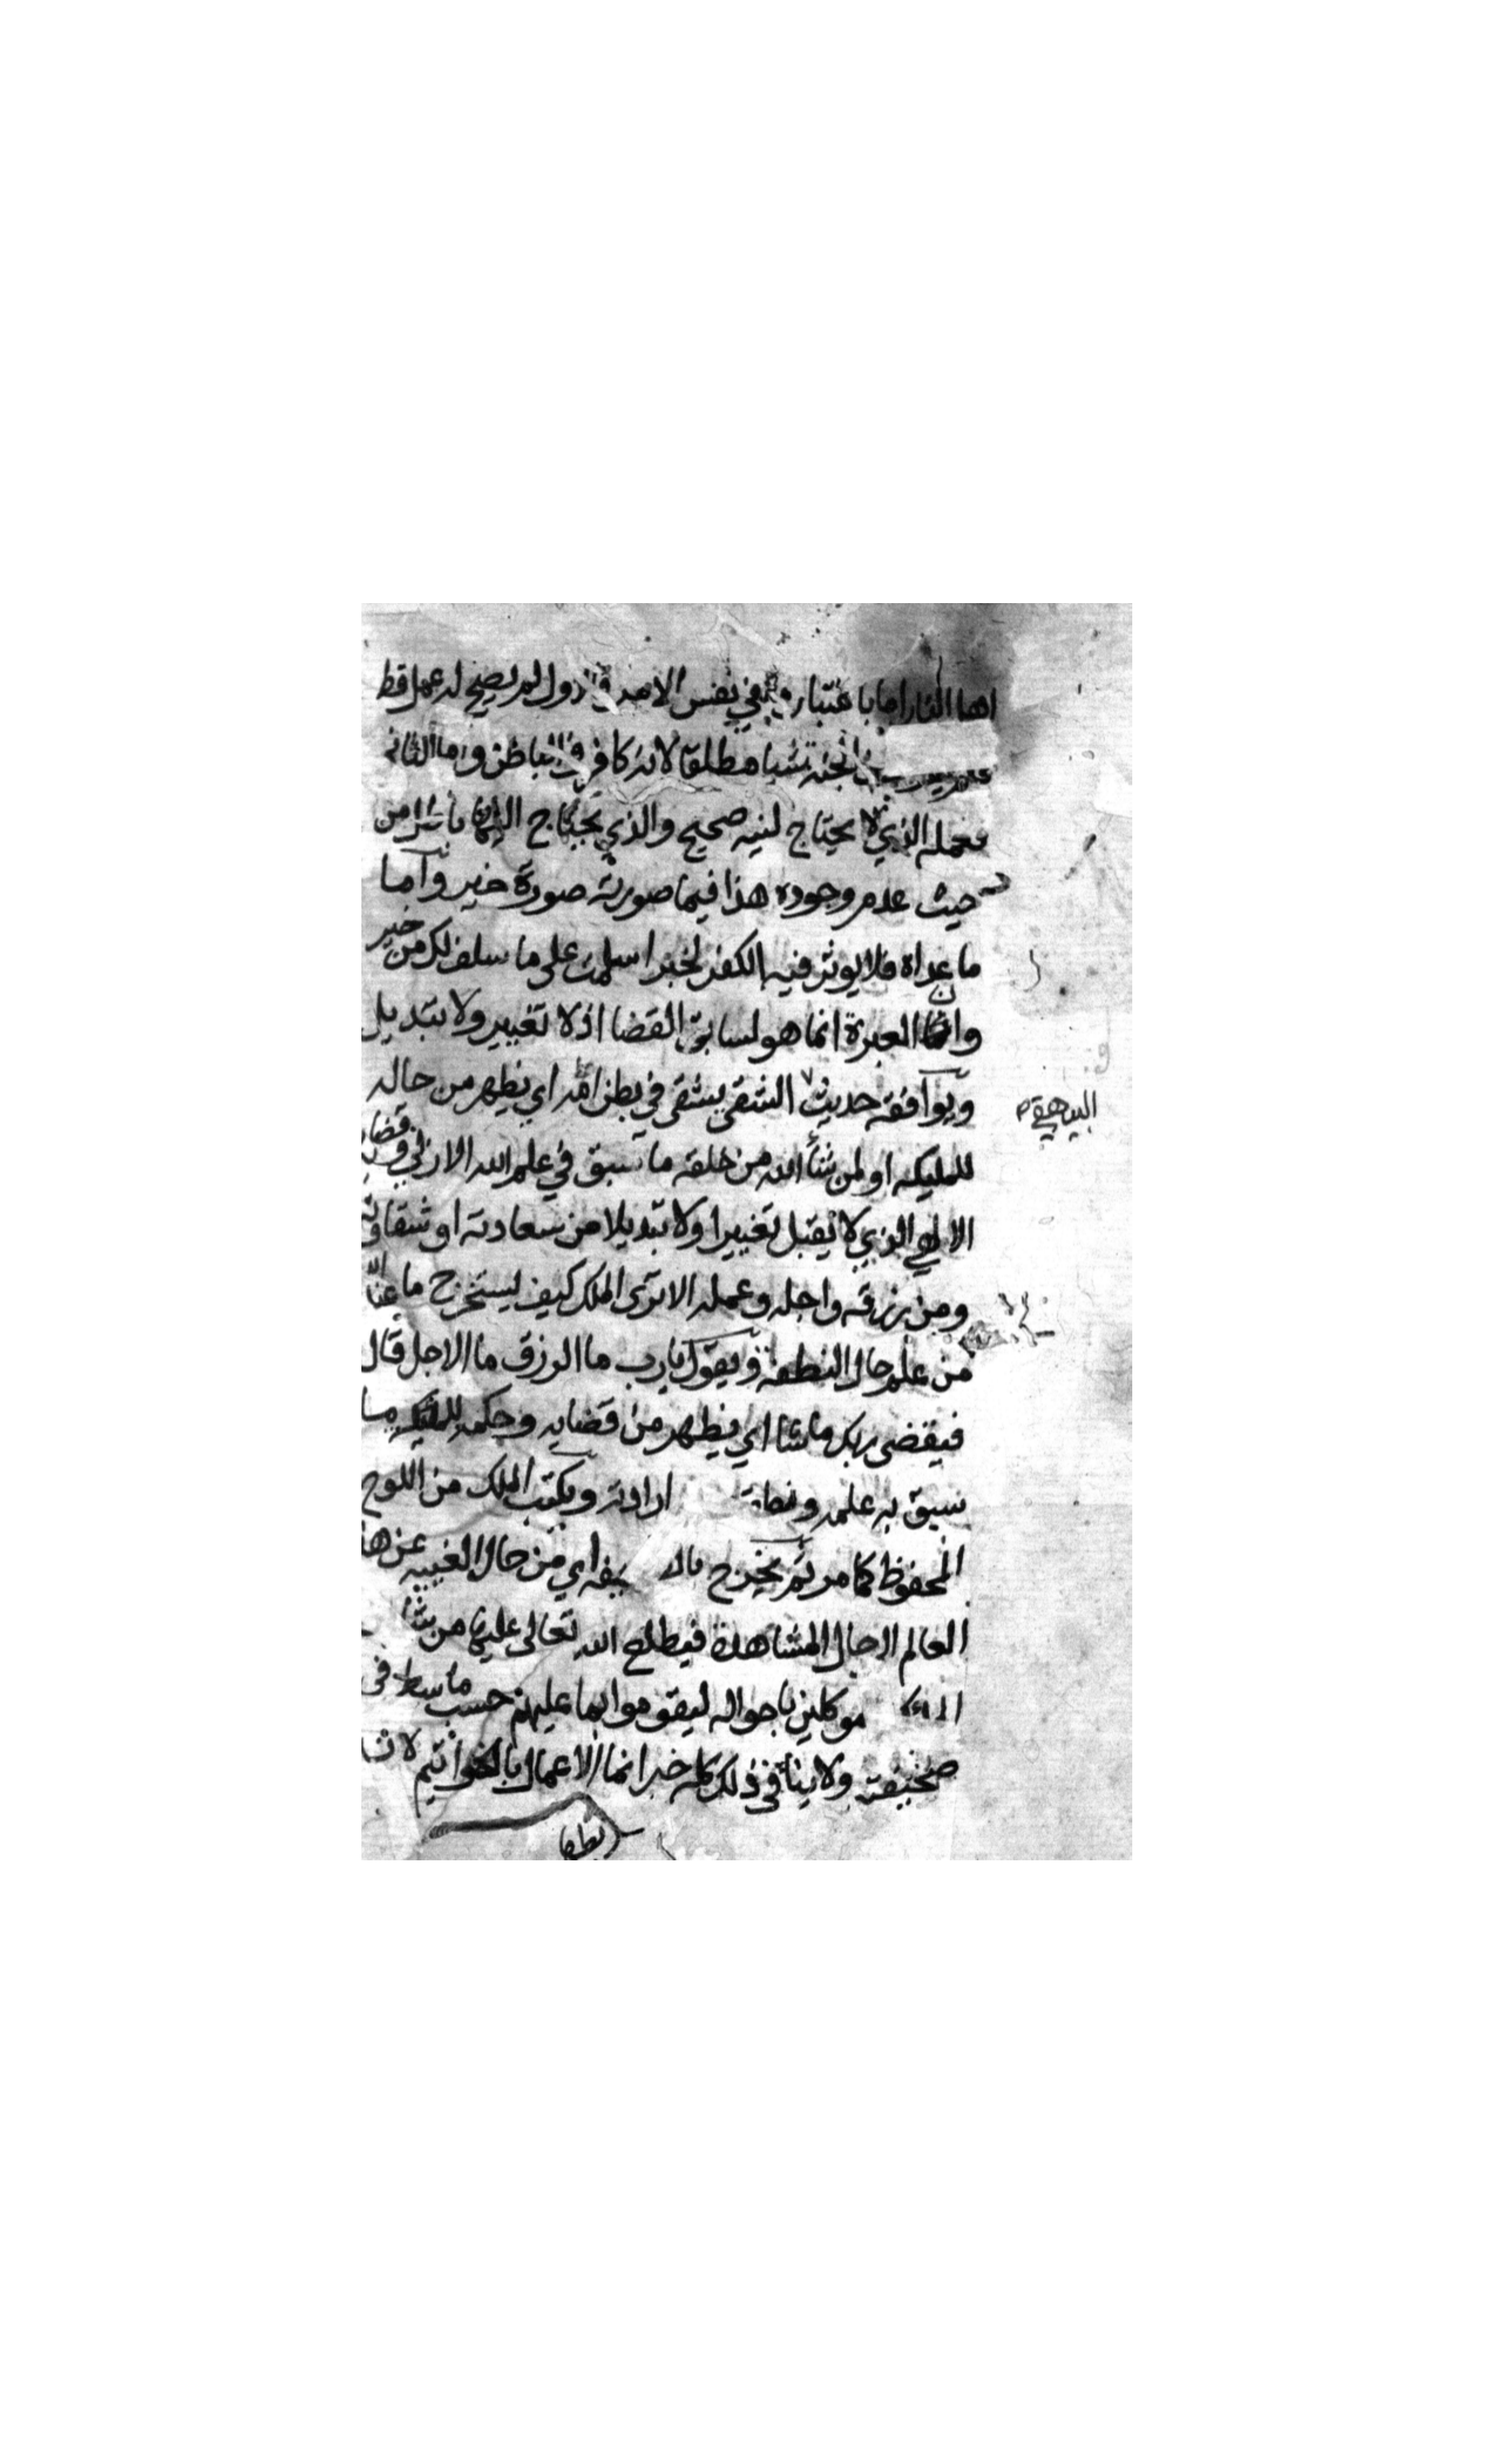 اهل النار اما باعتبار وفي نفس الامر فالاول لم يصح له عمل قط
الجنة شيا مطلقا لانه كافر في الباطن واما الثاني
فعمله الذي لا يحتاج لنية صحيح والذي يحتاج اليها باطل من
حيث عدم وجوده هذا فيما صورته صورة خير واما
ما عداه فلا يوثر فيه الكفر لخبر اسلمت على ما سلف لك من خير
وان العبرة انما هو لسابق القضا اذ لا تغيير ولا تبديل
ويوافقه حديث الشقي يشقى في بطن امه اي يظهر من حاله
البيهقي
للمليكه او لمن شأ الله من خلقه ما سبق في علم الله الازلي وقضايه
الالهي الذي لا يقبل تغييرا ولا تبديلا من سعادته او شقاوته
ومن رزقه واجله وعمله الا ترى الملك كيف يستخرج ما عند الله
من علم حال النطفة ويقول يا رب ما الرزق ما الاجل قال
فيقضى ربك ما شا اي فيظهر من قضايه وحكمه للمليكه ما
سبق به علمه ارادته ويكتب الملك من اللوح
المحفوظ كما مر ثم يخرج اي من حال الغيبه عن هذا
العالم الى حال المشاهدة فيطلع الله تعالى عليها من شا
موكلين باحواله ليقوموا بما عليهم حسب ما سطر في
صحيفته ولا ينافي ذلك كله خبر انما الاعمال بالخواتيم لان
ربطها